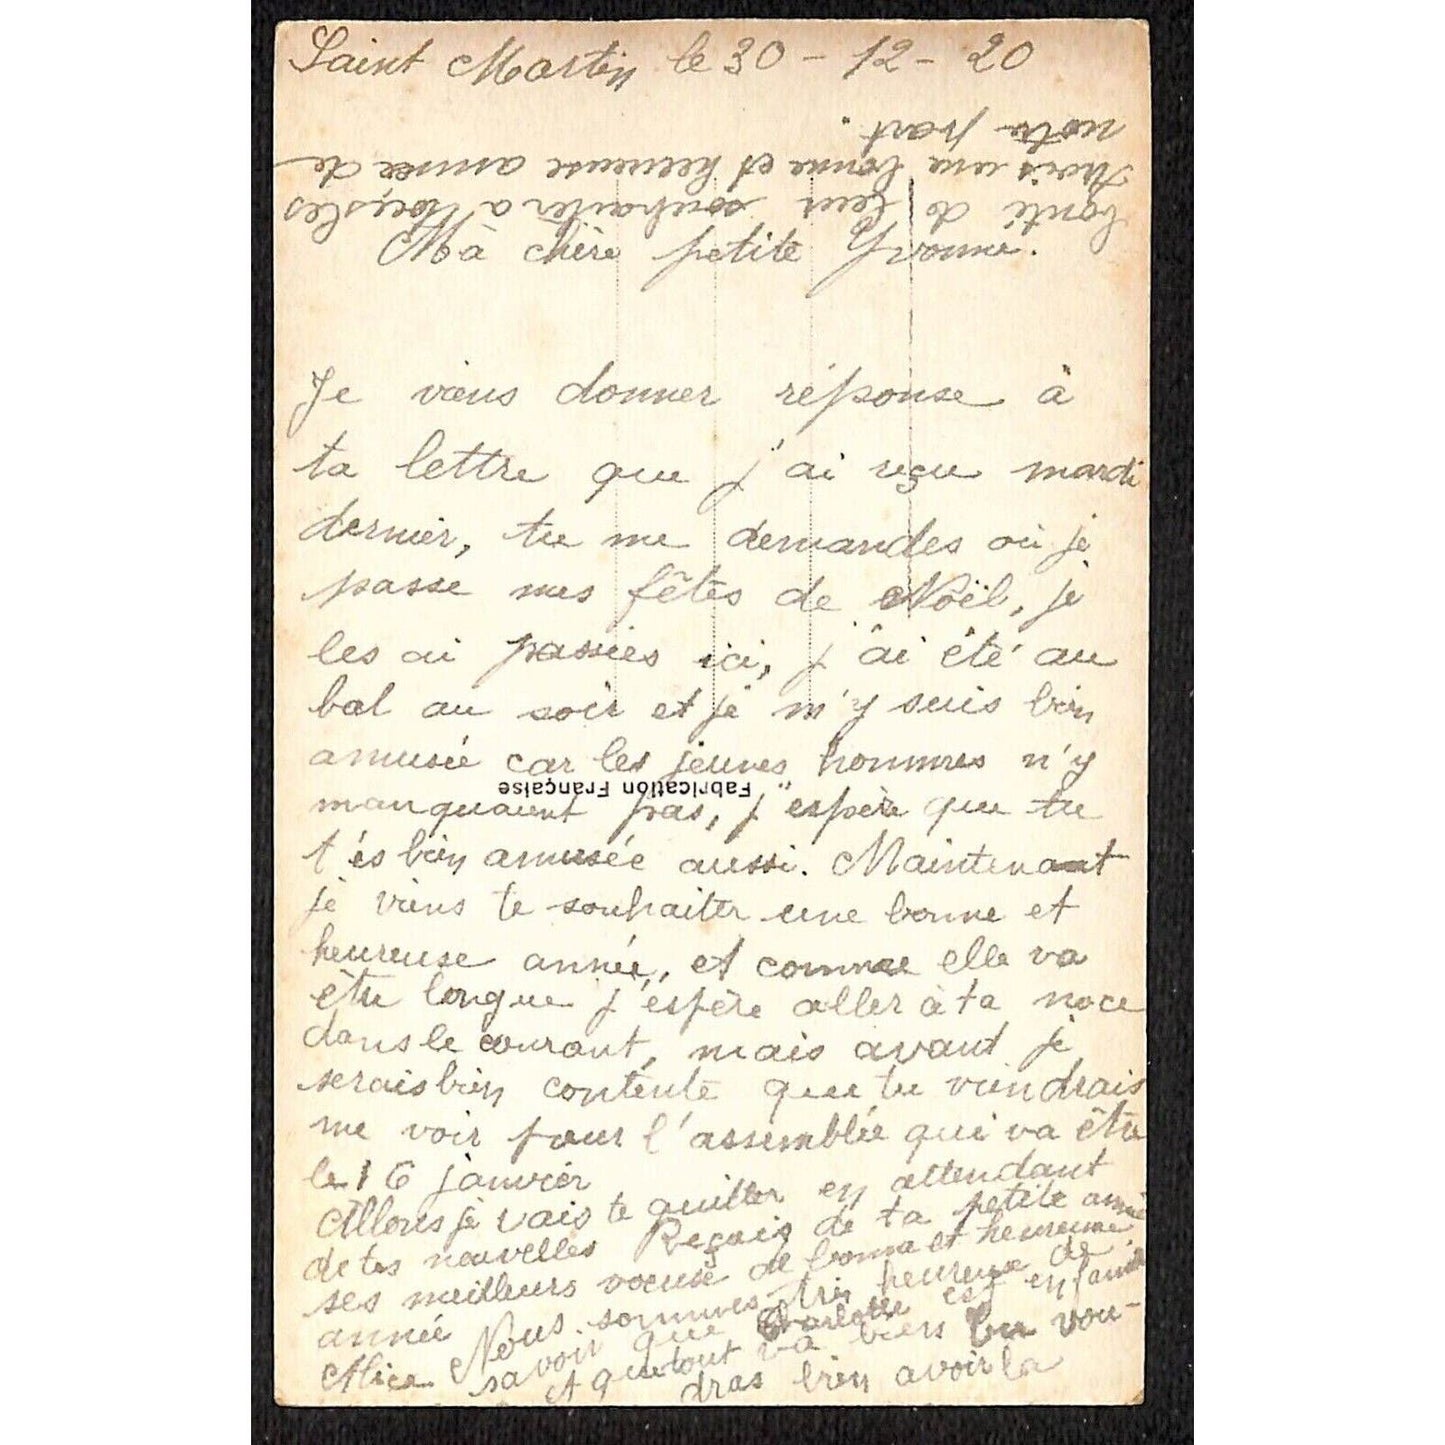 Saint Martin le 30 - 12 - 20
Mà chère petite Yvonne.
Je viens donner réponse à
ta lettre que j'ai reçu mardi
dernier, tu me demandes où je
passe mes fêtes de Noël, je
les ai passées ici, j'ai été au
bal au soir et je m'y suis bien
amusée car les jeunes hommes n'y
manquaient pas, j'espère que tu
t'és bien amusée aussi. Maintenant
je viens te souhaiter une bonne et
heureuse année, et comme elle va
être longue j'éspère aller à ta noce
dans le courant, mais avant je
serais bien contente que tu viendrais
me voir pour l'assemblée qui va être
le 16 janvier
Allons je vais te quitter en attendant
de tes nouvelles Reçois de ta petite amie
ses meilleurs voeux de bonne et heureuse
année
Alice Nous sommes très heureuse de
savoir que Charlotte est en famille
et que tout va bien tu vou-
dras bien avoir la
bonté de leur souhaiter à tous les
trois une bonne et heureuse année de
notre part.
Fabrication Française